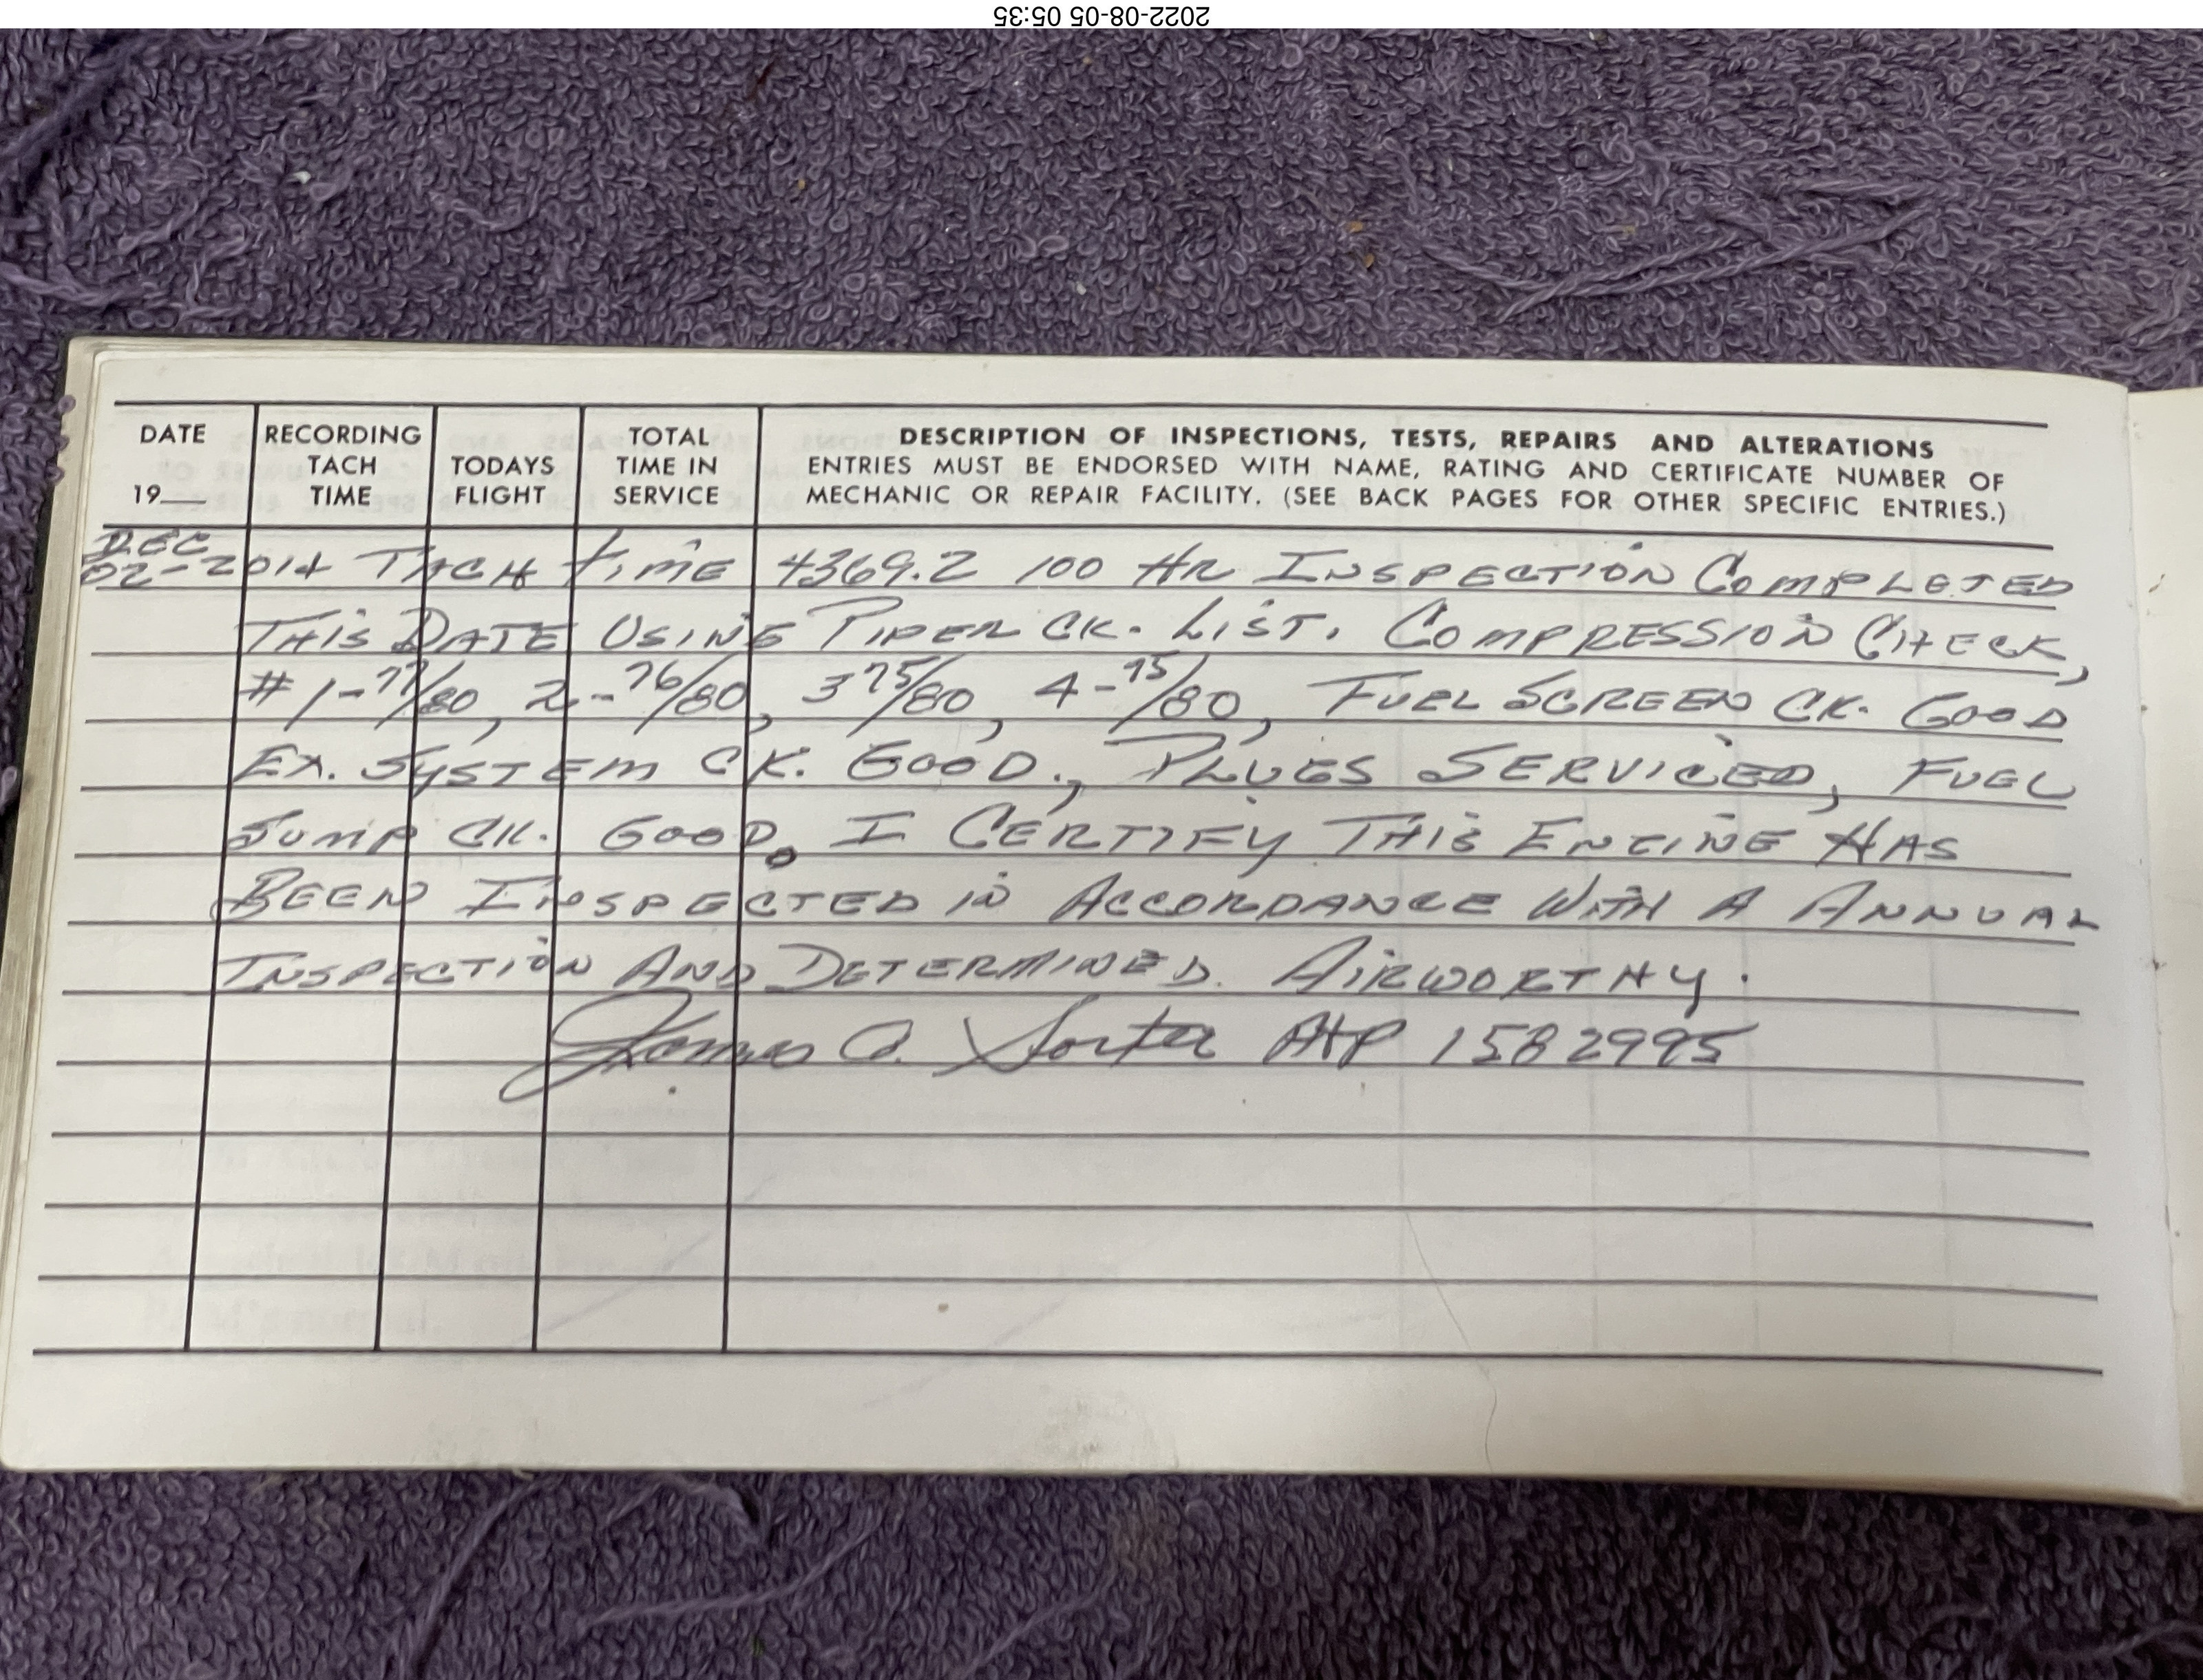 2022-08-05 05:35
DATE 19___ RECORDING TACH TIME TODAYS FLIGHT TOTAL TIME IN SERVICE
DESCRIPTION OF INSPECTIONS, TESTS, REPAIRS AND ALTERATIONS
ENTRIES MUST BE ENDORSED WITH NAME, RATING AND CERTIFICATE NUMBER OF
MECHANIC OR REPAIR FACILITY. (SEE BACK PAGES FOR OTHER SPECIFIC ENTRIES.)
DEC
02-2014 TACH TIME 4369.2 100 HR INSPECTION COMPLETED
THIS DATE USING PIPER CK. LIST. COMPRESSION CHECK,
# 1-77/80, 2-76/80, 3 75/80, 4-75/80, FUEL SCREEN CK. GOOD
EX. SYSTEM CK. GOOD., PLUGS SERVICED, FUEL
SUMP CK. GOOD. I CERTIFY THIS ENGINE HAS
BEEN INSPECTED IN ACCORDANCE WITH A ANNUAL
INSPECTION AND DETERMINED AIRWORTHY.
A+P 1582995